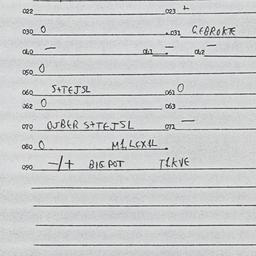 022 023 +
030 0 031 GEBROKTE
040 — 041 — 042 —
050 0
060 S+TEJSL 061 0
062 0 063
070 OJBER S+TEJSL 071 —
080 0
090 —/+ BIG POT T1KVE